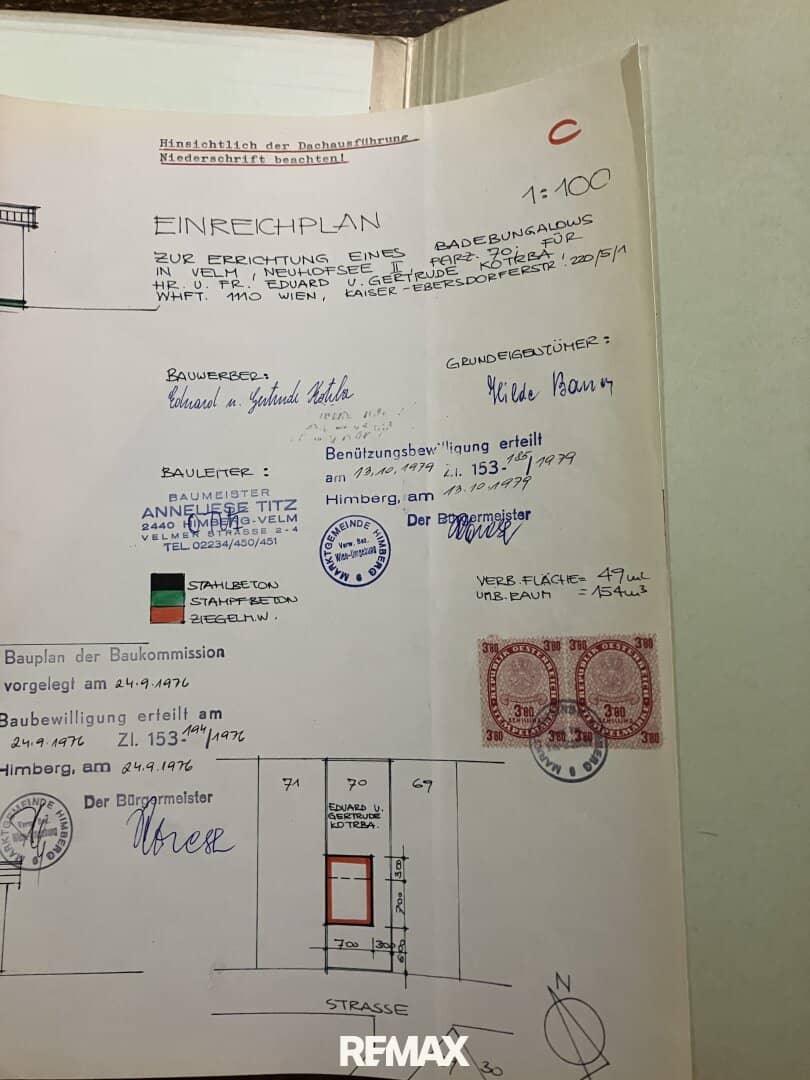 Hinsichtlich der Dachausführung
Niederschrift beachten!
C
1:100
EINREICHPLAN
ZUR ERRICHTUNG EINES BADEBUNGALOWS
IN VELM, NEUHOFSEE II PARZ. 70, FÜR
HR. U. FR. EDUARD U. GERTRUDE KOTRBA!
WHFT. 1110 WIEN, KAISER-EBERSDORFERSTR. 220/5/1
BAUWERBER:
Eduard u. Gertrude Kotrba
GRUNDEIGENTÜMER:
Hilde
BAULEITER:
BAUMEISTER
ANNELIESE TITZ
2440 HIMBERG-VELM
VELMER STRASSE 2-4
TEL. 02234/450/451
Benützungsbewilligung erteilt
am 13.10.1979 Zl. 153-185/1979
Himberg, am 13.10.1979
Der Bürgermeister
MARKTGEMEINDE HIMBERG
Verw. Bez.
Wien-Umgebung
STAHLBETON
STAMPFBETON
ZIEGELM.W.
VERB. FLÄCHE= 49 m2
UMB. RAUM = 154 m3
Bauplan der Baukommission
vorgelegt am 24.9.1976
Baubewilligung erteilt am
24.9.1976 Zl. 153-194/1976
Himberg, am 24.9.1976
Der Bürgermeister
MARKTGEMEINDE HIMBERG
3'80 3'80 3'80
REPUBLIK OESTERREICH REPUBLIK OESTERREICH
3'80 3'80
SCHILLING SCHILLING
STEMPELMARKE
3'80 3'80 3'80
71 70 69
EDUARD U.
GERTRUDE
KOTRBA.
300
700
700 300
600
STRASSE
N
30
REMAX